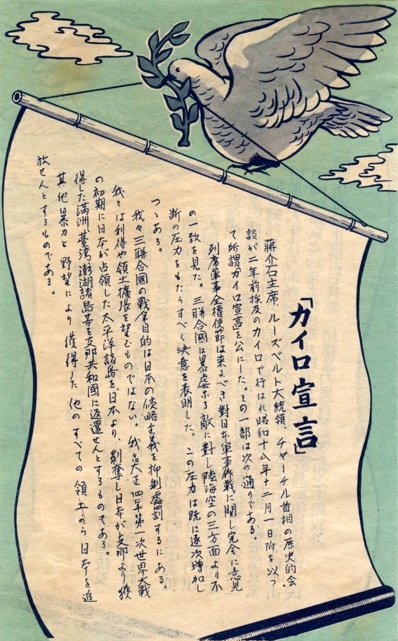 「カイロ宣言」
蔣介石主席、ルーズベルト大統領、チャーチル首相の歴史的会
談が二年前埃及のカイロで行はれ昭和十八年十二月一日附を以つ
て所謂カイロ宣言を公にした。その一部は次の通りである。
列席軍事全権使節は来るべき対日本軍事作戦に関し完全に意見
の一致を見た。三聯合國は暴虐なる敵に対し陸海空の三方面より不
断の圧力をもたらすべく決意を表明した。この圧力は既に逐次増加し
つゝある。
我々三聯合國の戦争目的は日本の侵略主義を抑制處罰するにある。
我々は利得や領土擴張を望むものではない。大正四年第一次世界大戦
の初期に日本が占領した太平洋諸島を日本より剝奪し日本が支那より獲
得した満洲臺湾澎湖諸島等を支那共和國に返還せんとするものである。
其他暴力と野望により獲得した他のすべての領土から日本を追
放せんとするものである。